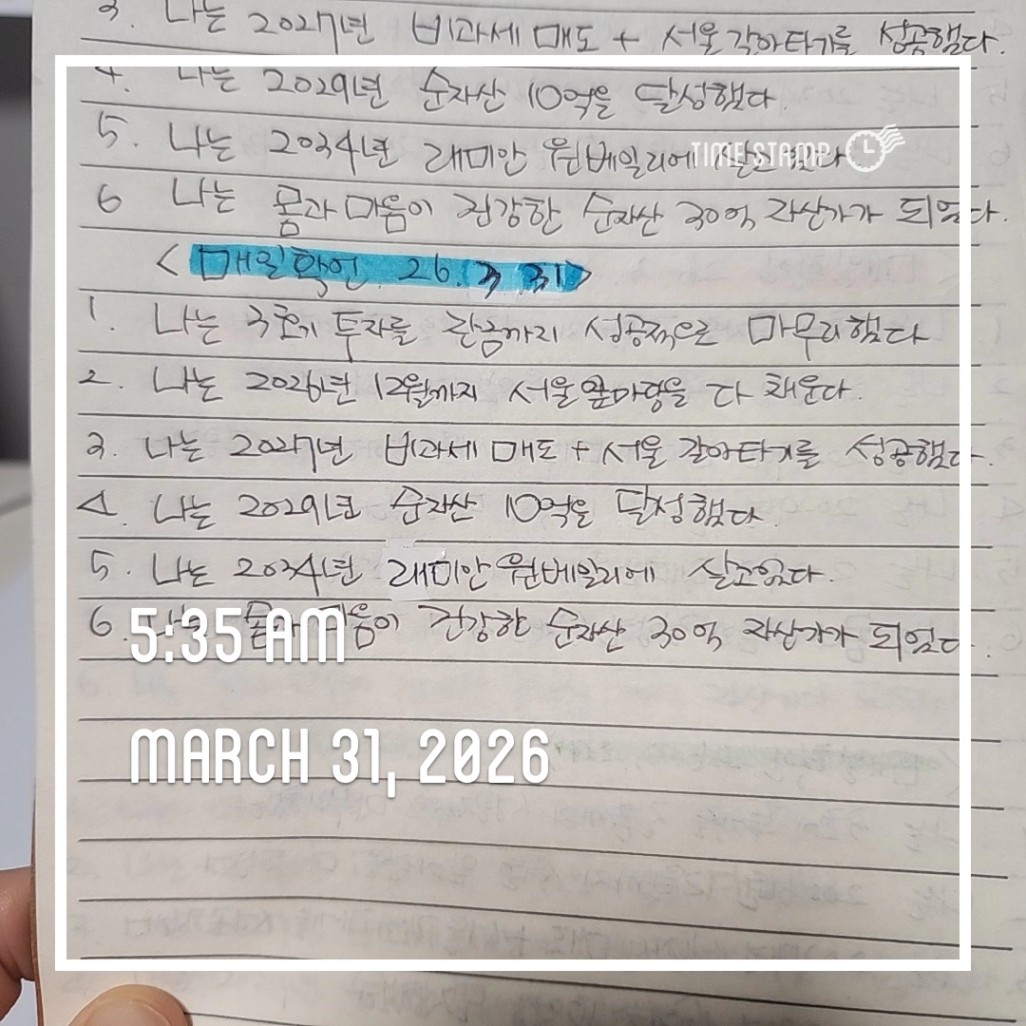 3. 나는 2027년 비과세 매도 + 서울 갈아타기를 성공했다.
4. 나는 2029년 순자산 10억을 달성했다.
5. 나는 2034년 래미안 원베일리에 살고있다
TIME STAMP
6 나는 몸과 마음이 건강한 순자산 30억 자산가가 되었다.
<매일확언 26. 3. 31>
1. 나는 투자를 잔금까지 성공적으로 마무리했다
2. 나는 2026년 12월까지 서울 앞마당을 다 채운다.
3. 나는 2027년 비과세 매도 + 서울 갈아타기를 성공했다.
4. 나는 2029년 순자산 10억을 달성했다.
5. 나는 2034년 래미안 원베일리에 살고있다.
6. 나는 몸과 마음이 건강한 순자산 30억 자산가가 되었다.
5:35 AM
MARCH 31, 2026